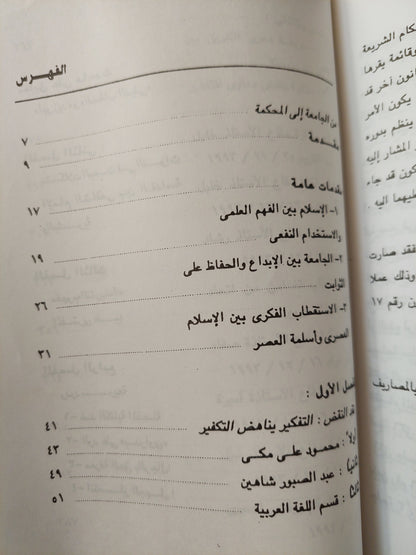 الفهرس
من الجامعة إلى المحكمة ٧
مقدمة ٩
مقدمات عامة ١٧
١- الإسلام بين الفهم العلمى
والاستخدام النفعى ١٩
٢- الجامعة بين الإبداع والحفاظ على
الثوابت ٢٦
٣- الاستقطاب الفكرى بين الإسلام
العصرى وأسلمة العصر ٣١
الفصل الأول :
نقد النقض : التفكير يناهض التكفير ٤١
أولاً : محمود على مكى ٤٣
ثانيا : عبد الصبور شاهين ٤٩
ثالثا : قسم اللغة العربية ٥١
كام الشريعة
وقائمة يقرها
انون أخر قد
يكون الأمر
ينظم بدوره
المشار إليه
كون قد جاء
عليهما اليه .
فقد صارت
وذلك عملا
ن رقم ١٧
بالمصاريف